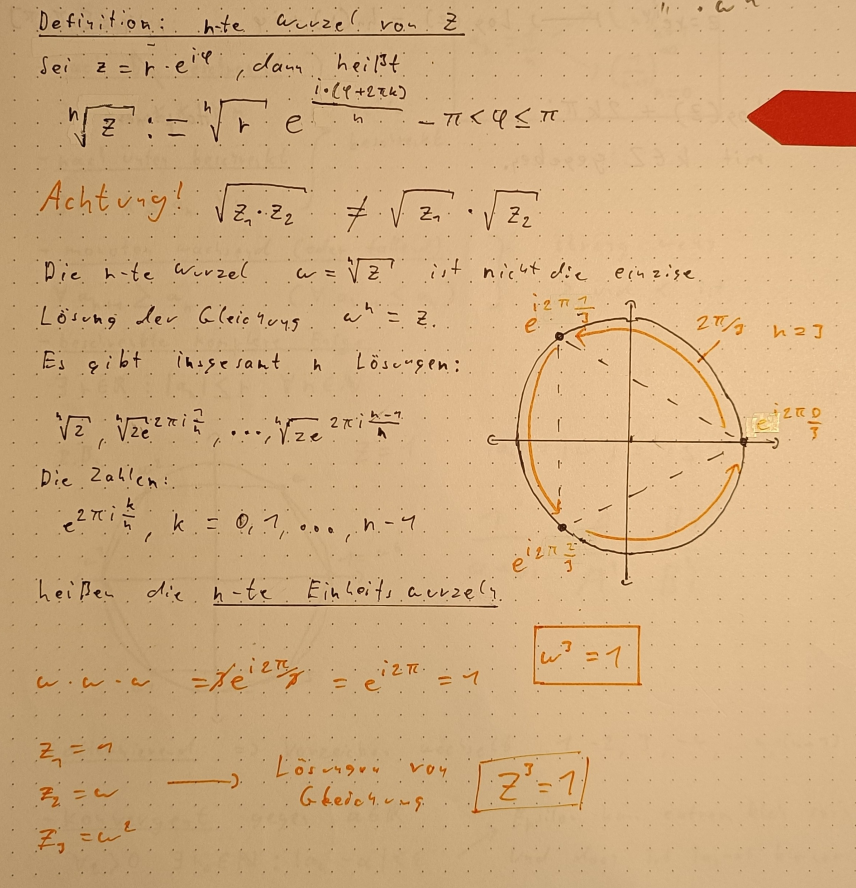 Definition: n-te Wurzel von Z
Sei z = r · e^{iφ}, dann heißt
ⁿ√z := ⁿ√r e^{i·(φ+2πk)/n} - π < φ ≤ π
Achtung! √(z₁·z₂) ≠ √z₁ · √z₂
Die n-te Wurzel w = ⁿ√z ist nicht die einzige
Lösung der Gleichung wⁿ = z.
Es gibt insgesamt n Lösungen:
ⁿ√z, ⁿ√z e^{2πi 1/n}, ..., ⁿ√z e^{2πi (n-1)/n}
Die Zahlen:
e^{2πi k/n}, k = 0, 1, ..., n-1
heißen die n-te Einheitswurzeln.
e^{i2π 1/3}
2π/3 n=3
e^{i2π 0/3}
e^{i2π 2/3}
w · w · w = 3e^{i2π/3} = e^{i2π} = 1
w³ = 1
z₁ = 1
z₂ = w
z₃ = w²
Lösungen von
Gleichung
Z³ = 1